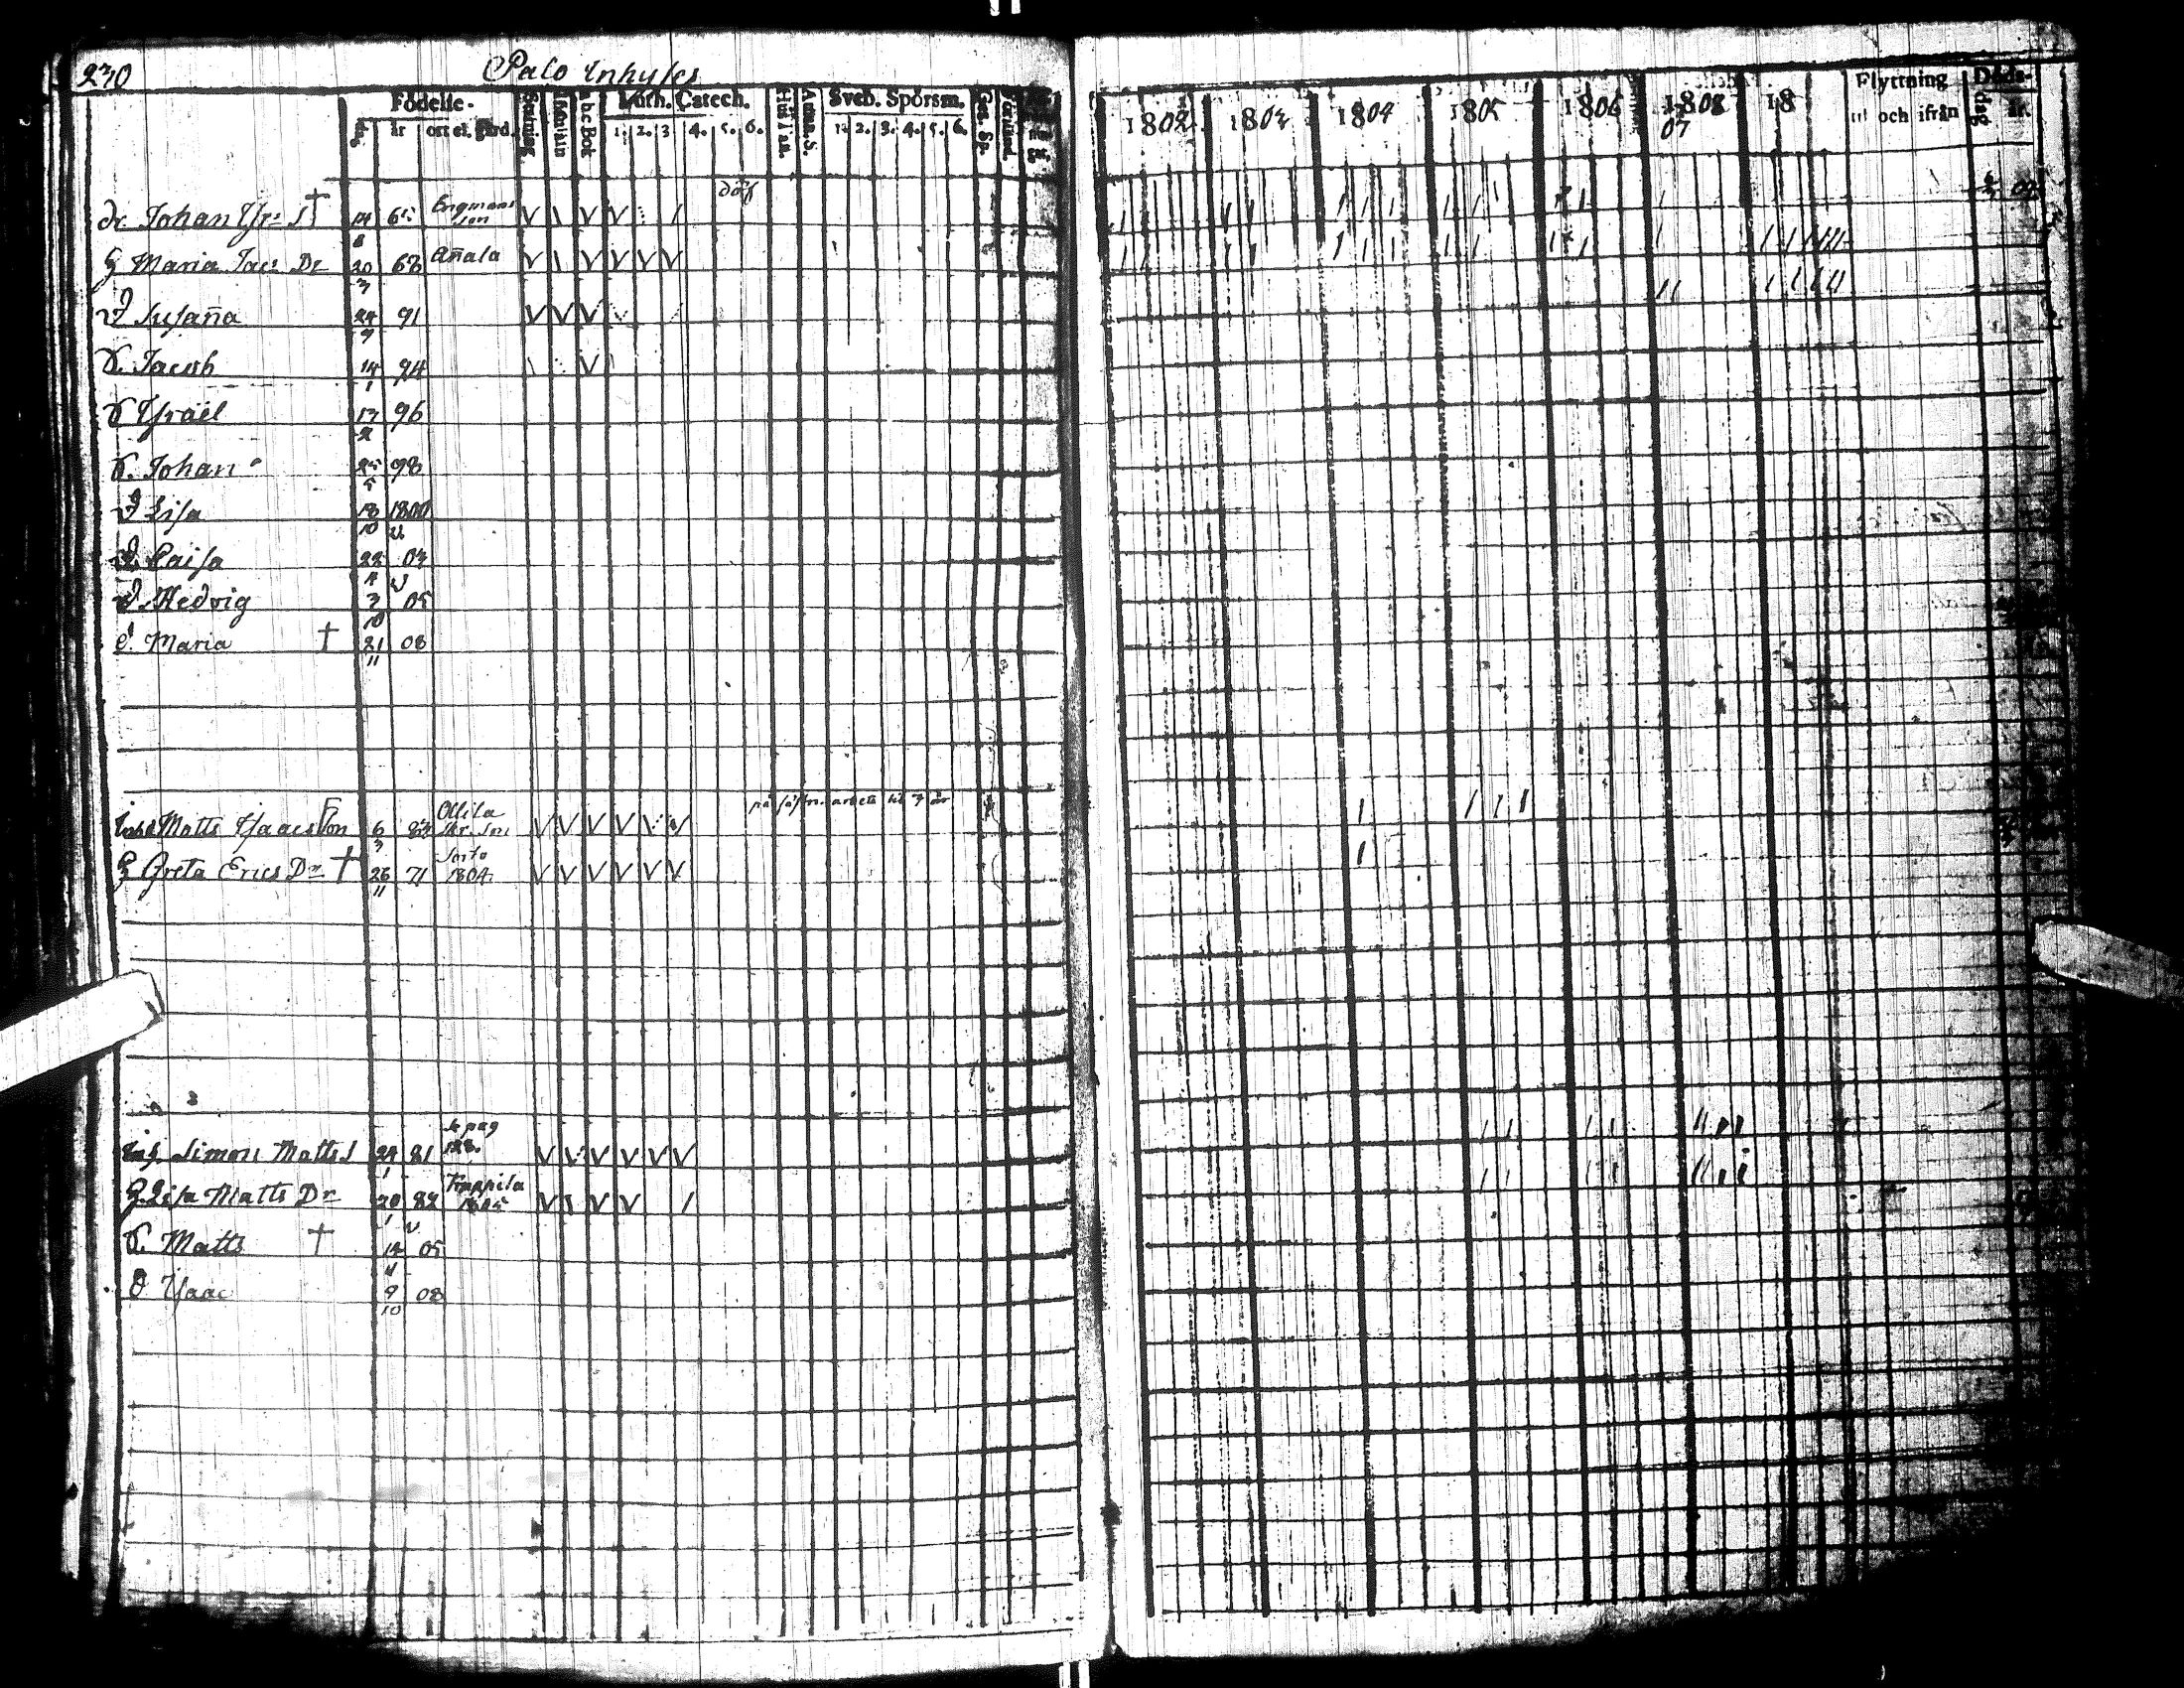 230 Palo Inhyses
Födelse-
dag år ort el. gård.
a b c Bok
Luth. Catech.
1. 2. 3 4. 5. 6.
Hust. an.
Atan. S.
Sveb. Spörsm.
1. 2. 3. 4. 5. 6.
1802 1803 1804 1805 1806 1808 18
07
Flyttning
ut och ifrån
Döds-
dag år.
döf
dr. Johan Isr: S † 14 65 Engmans son
8
H Maria Jac: Dr 20 68 Añala
3
d Susaña 24 91
9
S. Jacob 14 94
1
S Israël 17 96
2
S. Johan 25 98
5
d Lisa 18 1800
10
d. Caisa 22 03
4
d. Hedvig 7 05
10
d. Maria † 21 08
11
på fästn. arbete til 7 år
Inhs Matts Isacsson 6 Ollila
3
H Greta Erics Dr † 26 71 1804.
11
se pag
Inh. Simon Matts S 24 81 128.
1
H. Lisa Matts Dr 20 82 Trappila 1805
1
S. Matts † 14 05
11
S Isaac 9 08
10